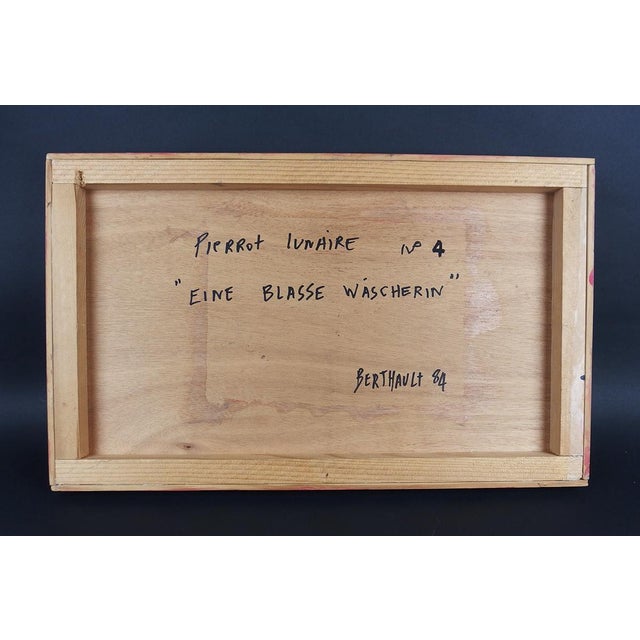 PIERROT LUNAIRE N° 4
"EINE BLASSE WÄSCHERIN"
BERTHAULT 84